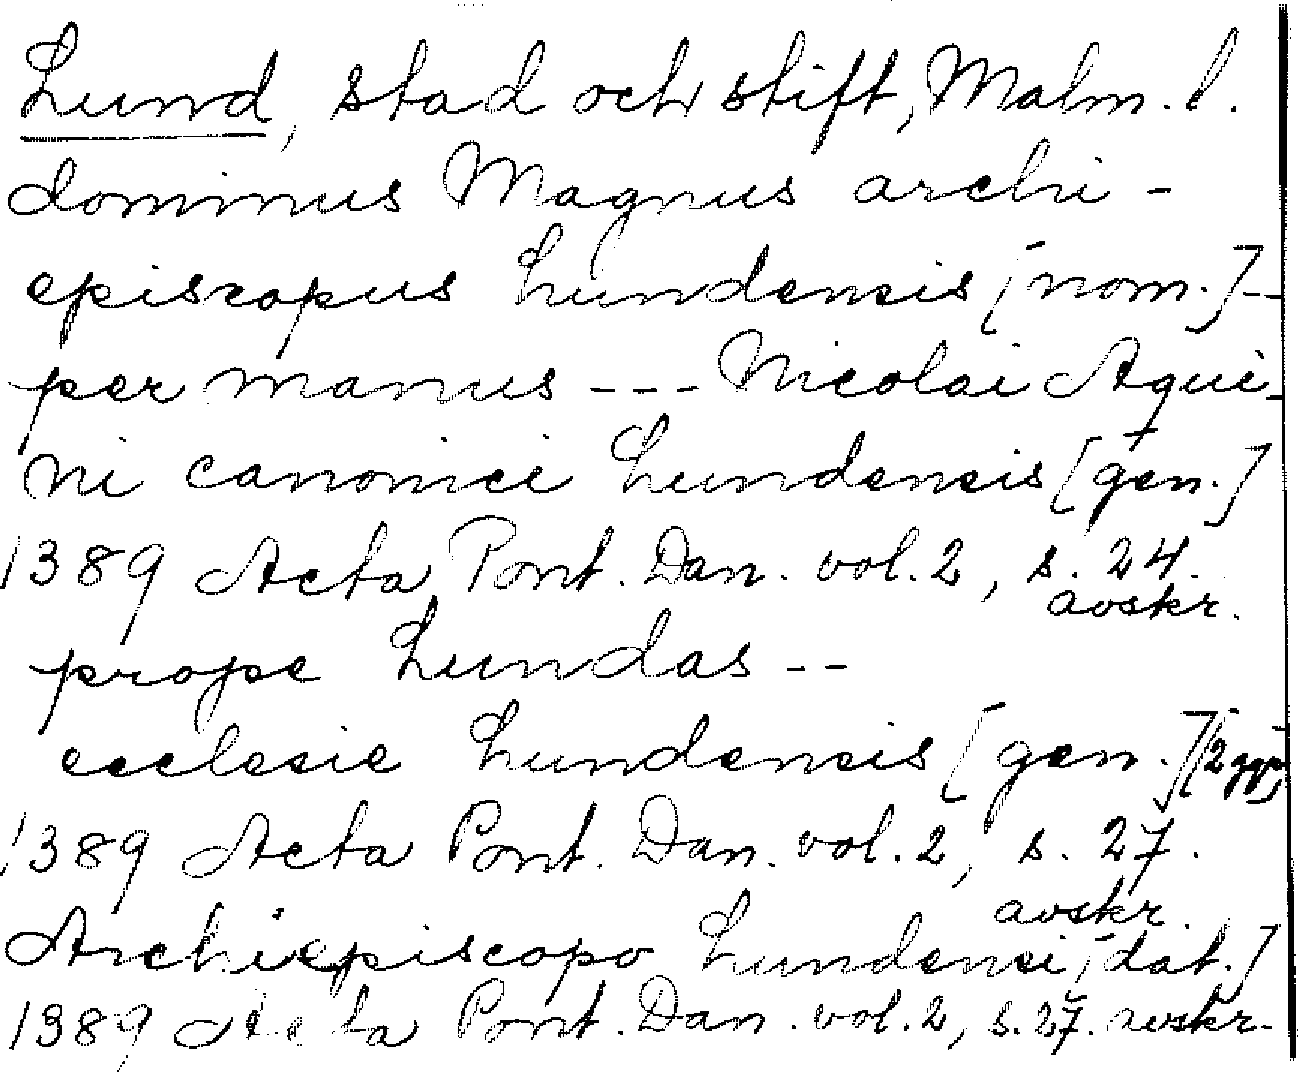 Lund, stad och stift, Malm. l.
dominus Magnus archi-
episcopus Lundensis [nom.] --
per manus --- Nicolai Aqui-
ni canonici Lundensis [gen.]
1389 Acta Pont. Dan. vol. 2, s. 24.
avskr.
prope Lundas --
ecclesie Lundensis [gen.] [2 ggr]
1389 Acta Pont. Dan. vol. 2, s. 27.
avskr.
Archiepiscopo Lundensi [dat.]
1389 Acta Pont. Dan. vol. 2, s. 27. avskr.